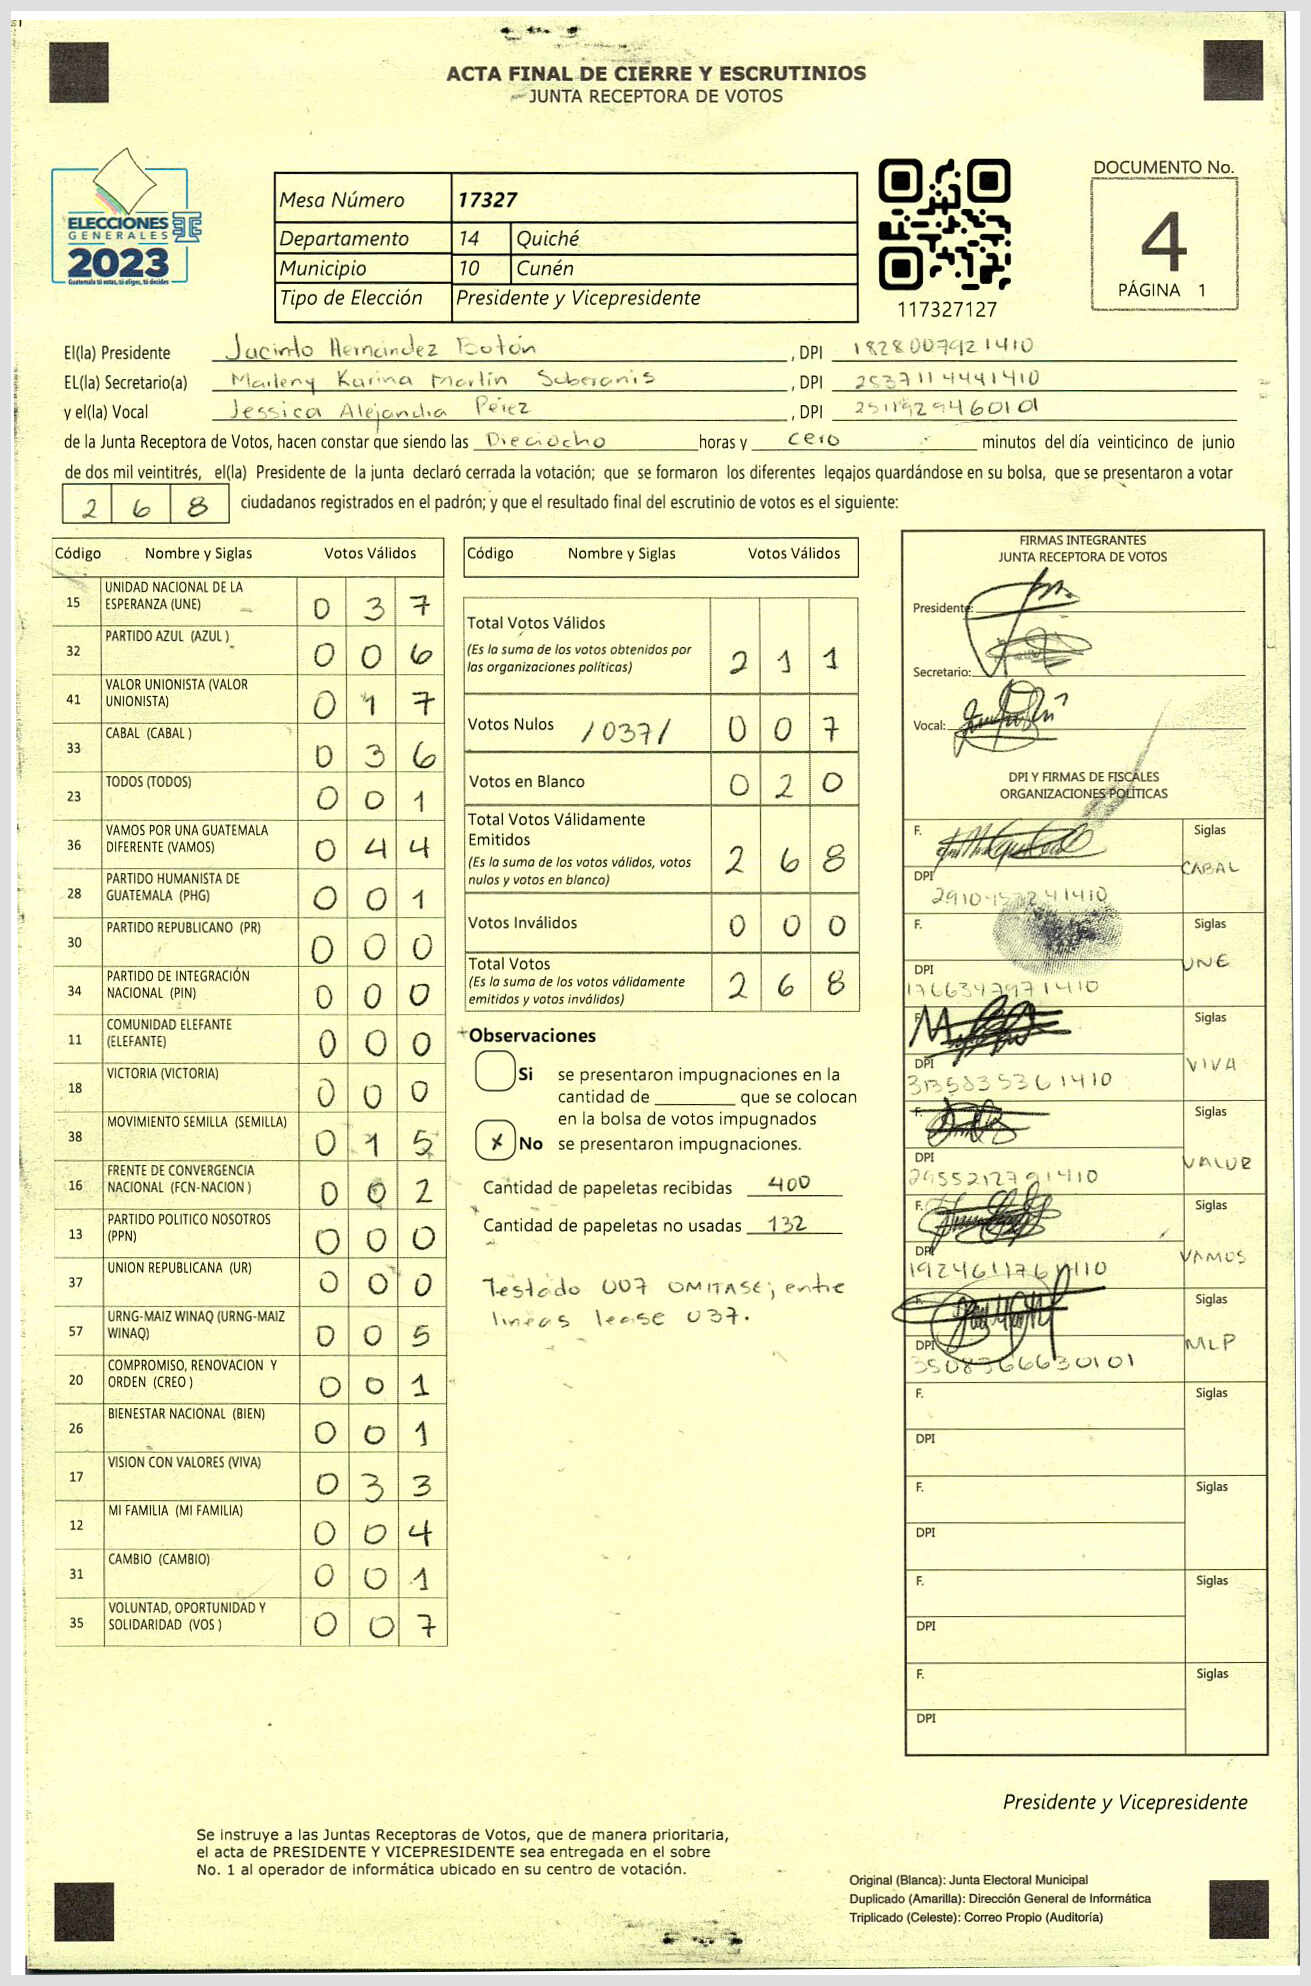 ACTA FINAL DE CIERRE Y ESCRUTINIOS
JUNTA RECEPTORA DE VOTOS
ELECCIONES
GENERALES
2023
Guatemala tú votas, tú eliges, tú decides
Mesa Número 17327
Departamento 14 Quiché
Municipio 10 Cunén
Tipo de Elección Presidente y Vicepresidente
117327127
DOCUMENTO No.
4
PÁGINA 1
El(la) Presidente Jacinto Hernández Botón , DPI 1828007921410
EL(la) Secretario(a) Marleny Karina Martin , DPI 2537114441410
y el(la) Vocal Jessica Alejandra Pérez , DPI 2511929460101
de la Junta Receptora de Votos, hacen constar que siendo las Dieciocho horas y cero minutos del día veinticinco de junio
de dos mil veintitrés, el(la) Presidente de la junta declaró cerrada la votación; que se formaron los diferentes legajos guardándose en su bolsa, que se presentaron a votar
268 ciudadanos registrados en el padrón; y que el resultado final del escrutinio de votos es el siguiente:
Código Nombre y Siglas Votos Válidos
15 UNIDAD NACIONAL DE LA ESPERANZA (UNE) 0 3 7
32 PARTIDO AZUL (AZUL ) 0 0 6
41 VALOR UNIONISTA (VALOR UNIONISTA) 0 1 7
33 CABAL (CABAL ) 0 3 6
23 TODOS (TODOS) 0 0 1
36 VAMOS POR UNA GUATEMALA DIFERENTE (VAMOS) 0 4 4
28 PARTIDO HUMANISTA DE GUATEMALA (PHG) 0 0 1
30 PARTIDO REPUBLICANO (PR) 0 0 0
34 PARTIDO DE INTEGRACIÓN NACIONAL (PIN) 0 0 0
11 COMUNIDAD ELEFANTE (ELEFANTE) 0 0 0
18 VICTORIA (VICTORIA) 0 0 0
38 MOVIMIENTO SEMILLA (SEMILLA) 0 1 5
16 FRENTE DE CONVERGENCIA NACIONAL (FCN-NACION ) 0 0 2
13 PARTIDO POLITICO NOSOTROS (PPN) 0 0 0
37 UNION REPUBLICANA (UR) 0 0 0
57 URNG-MAIZ WINAQ (URNG-MAIZ WINAQ) 0 0 5
20 COMPROMISO, RENOVACION Y ORDEN (CREO ) 0 0 1
26 BIENESTAR NACIONAL (BIEN) 0 0 1
17 VISION CON VALORES (VIVA) 0 3 3
12 MI FAMILIA (MI FAMILIA) 0 0 4
31 CAMBIO (CAMBIO) 0 0 1
35 VOLUNTAD, OPORTUNIDAD Y SOLIDARIDAD (VOS ) 0 0 7
Código Nombre y Siglas Votos Válidos
Total Votos Válidos 2 1 1
(Es la suma de los votos obtenidos por
las organizaciones políticas)
Votos Nulos /037/ 0 0 7
Votos en Blanco 0 2 0
Total Votos Válidamente
Emitidos 2 6 8
(Es la suma de los votos válidos, votos
nulos y votos en blanco)
Votos Inválidos 0 0 0
Total Votos 2 6 8
(Es la suma de los votos válidamente
emitidos y votos inválidos)
Observaciones
Si se presentaron impugnaciones en la
cantidad de ________ que se colocan
en la bolsa de votos impugnados
x No se presentaron impugnaciones.
Cantidad de papeletas recibidas 400
Cantidad de papeletas no usadas 132
Testado 007 OMITASE; entre
lineas lease 037.
FIRMAS INTEGRANTES
JUNTA RECEPTORA DE VOTOS
Presidente:
Secretario:
Vocal:
DPI Y FIRMAS DE FISCALES
ORGANIZACIONES POLÍTICAS
F. Siglas
DPI CABAL
F. Siglas
DPI UNE
1766347971410
F. Siglas
DPI VIVA
3135835361410
F. Siglas
DPI VALOR
2955212791410
F. Siglas
DPI VAMOS
F. Siglas
DPI MLP
3508366630101
F. Siglas
DPI
F. Siglas
DPI
F. Siglas
DPI
F. Siglas
DPI
Presidente y Vicepresidente
Se instruye a las Juntas Receptoras de Votos, que de manera prioritaria,
el acta de PRESIDENTE Y VICEPRESIDENTE sea entregada en el sobre
No. 1 al operador de informática ubicado en su centro de votación.
Original (Blanca): Junta Electoral Municipal
Duplicado (Amarilla): Dirección General de Informática
Triplicado (Celeste): Correo Propio (Auditoría)